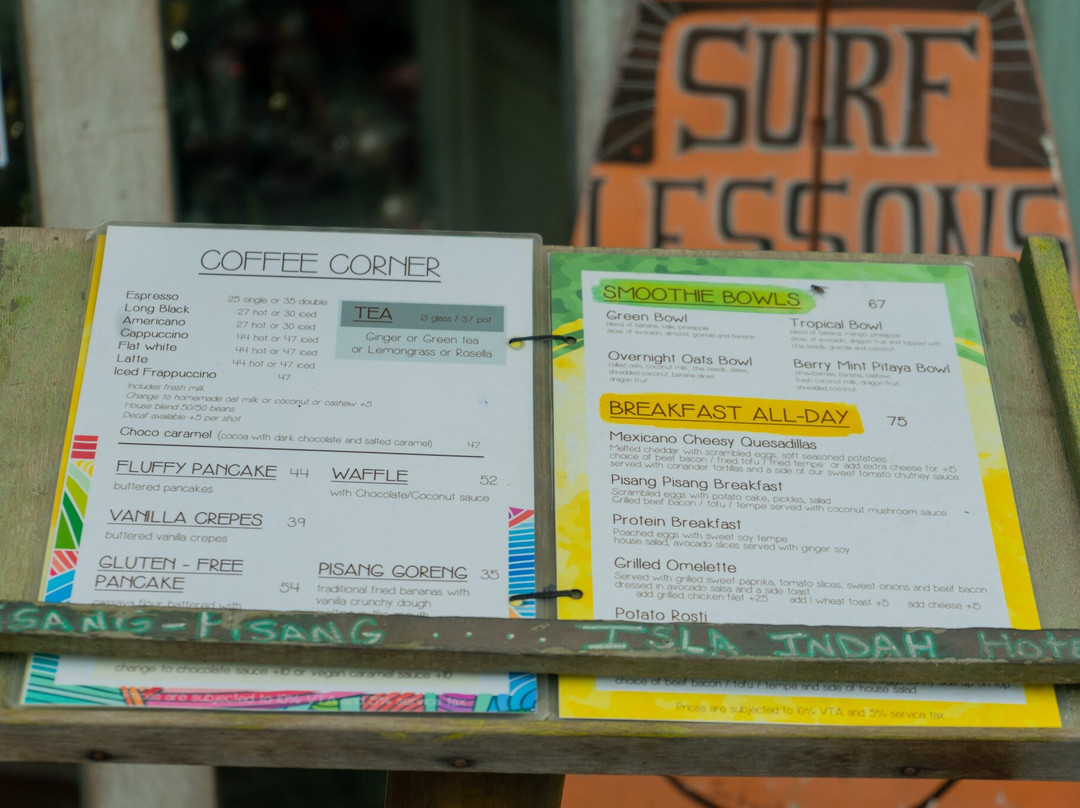 SURF
LESSONS
COFFEE CORNER
Espresso 25 single or 35 double
Long Black 27 hot or 30 iced
Americano 27 hot or 30 iced
Cappuccino 44 hot or 47 iced
Flat white 44 hot or 47 iced
Latte 44 hot or 47 iced
Iced Frappuccino 47
Includes fresh milk
Change to homemade oat milk or coconut or cashew +5
House blend 50/50 beans
Decaf available +5 per shot
TEA 21 glass / 37 pot
Ginger or Green tea
or Lemongrass or Rosella
Choco caramel (cocoa with dark chocolate and salted caramel) 47
FLUFFY PANCAKE 44
buttered pancakes
WAFFLE 52
with Chocolate/Coconut sauce
VANILLA CREPES 39
buttered vanilla crepes
GLUTEN - FREE
PANCAKE 54
cassava flour buttered with
PISANG GORENG 35
traditional fried bananas with
vanilla crunchy dough
change to chocolate sauce +10 or vegan caramel sauce +10
are subjected to 10% VTA tax
SMOOTHIE BOWLS 67
Green Bowl
blend of banana, kale, pineapple
slices of avocado, almond, granola and banana
Tropical Bowl
blend of banana, mango, pineapple
slices of avocado, dragon fruit and topped with
chia seeds, granola and coconut
Overnight Oats Bowl
rolled oats, coconut milk, chia seeds, dates,
shredded coconut, banana slices
dragon fruit
Berry Mint Pitaya Bowl
strawberries, banana, cashew,
fresh coconut milk, dragon fruit,
shredded coconut
BREAKFAST ALL-DAY 75
Mexicano Cheesy Quesadillas
Melted cheddar with scrambled eggs, soft seasoned potatoes
choice of beef bacon / fried tofu / fried tempe or add extra cheese for +15
served with coriander tortillas and a side of our sweet tomato chutney sauce
Pisang Pisang Breakfast
Scrambled eggs with potato cake, pickles, salad
Grilled beef bacon / tofu / tempe served with coconut mushroom sauce
Protein Breakfast
Poached eggs with sweet soy tempe
house salad, avocado slices served with ginger soy
Grilled Omelette
Served with grilled sweet paprika, tomato slices, sweet onions and beef bacon
dressed in avocado salsa and a side toast
add grilled chicken filet +25 add 1 wheat toast +5 add cheese +15
Potato Rosti
choice of beef bacon / tofu / tempe and side of house salad
Prices are subjected to 10% VTA and 5% service tax
SANG-PISANG .... ISLA INDAH Hote